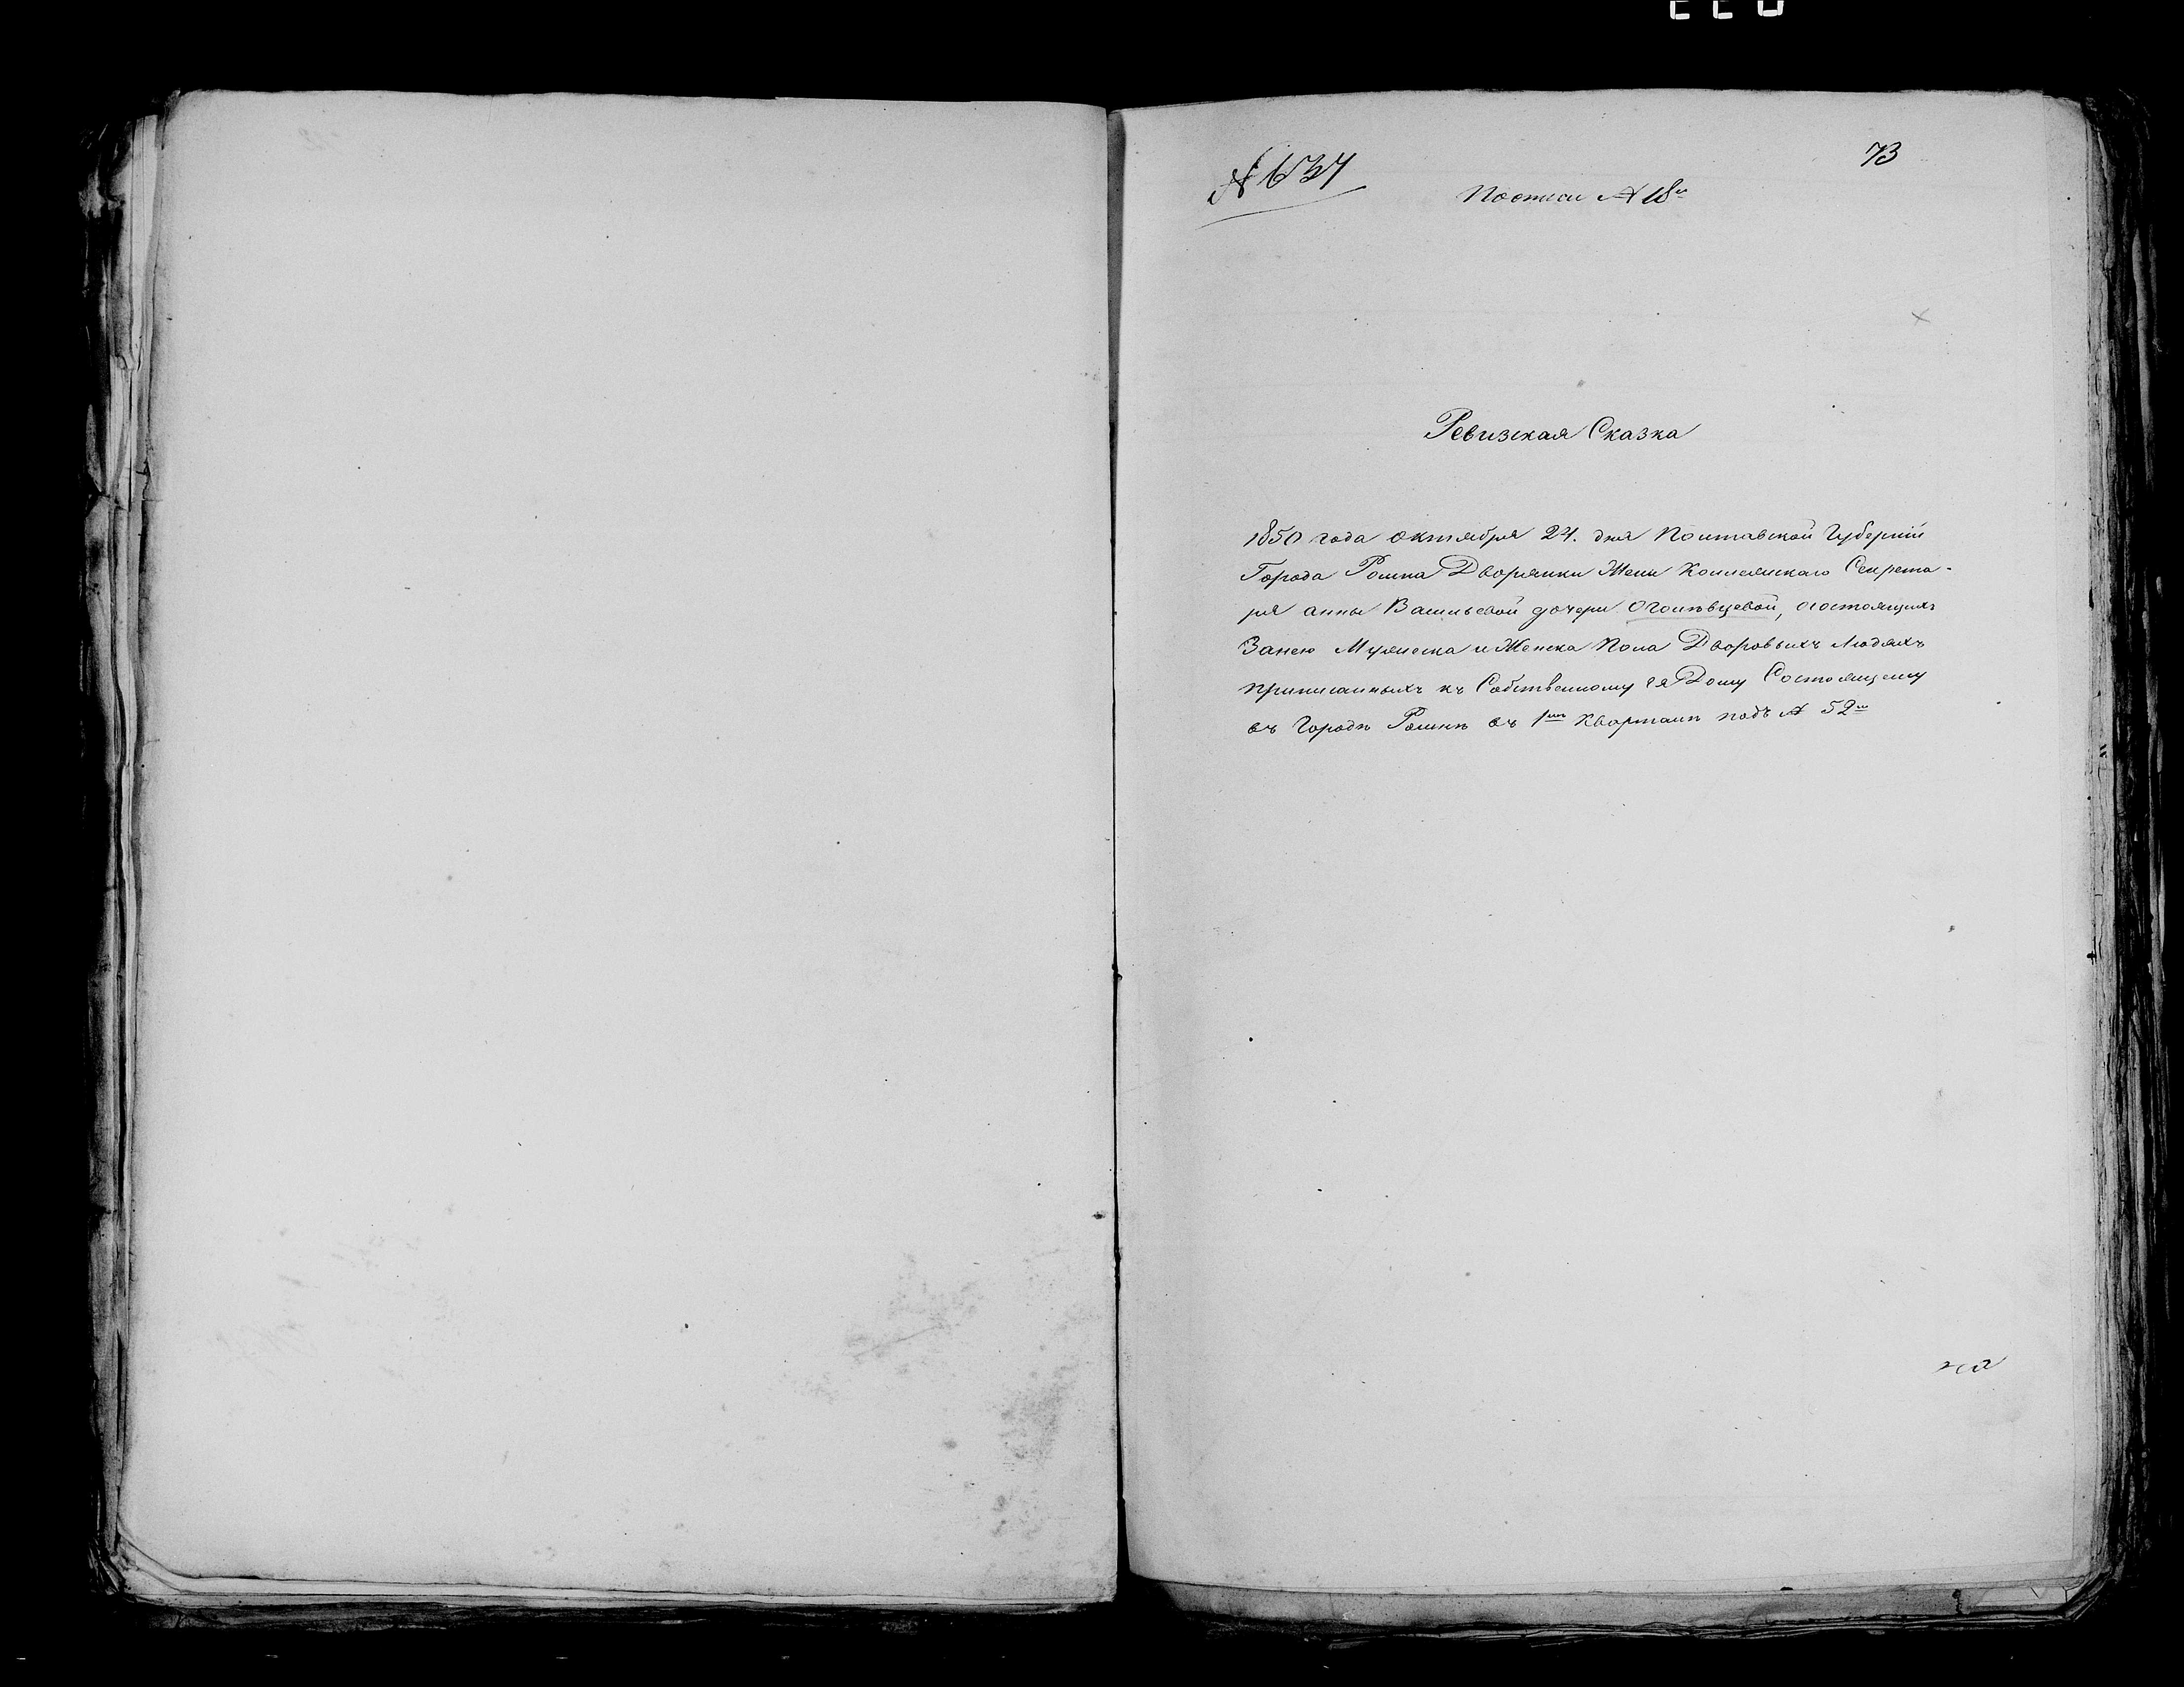 № 637
73
По описи № 18й
Ревизская Сказка
1850 года октября 24. дня Полтавской Губернии
Города Ромна Дворянки Жены Коллежскаго Секрета-
ря анны Васильевой дочери Оголѣвцевой, осостоящихъ
Занею Мужеска и Женска Пола Дворовыхъ Людяхъ
приписанныхъ къ Собственному ея Дому Состоящему
въ Городѣ Ромнѣ въ 1мъ Кварталѣ подъ № 52м